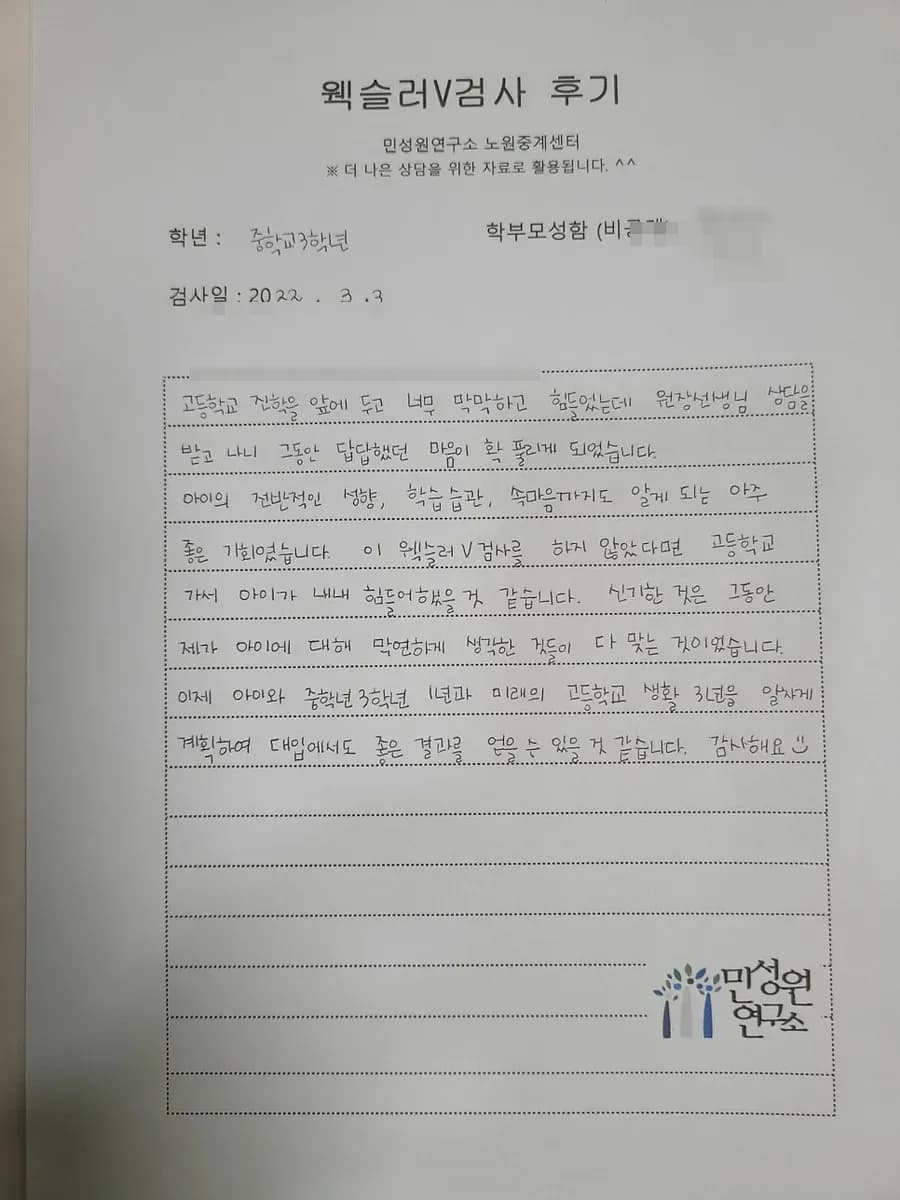 웩슬러V검사 후기
민성원연구소 노원중계센터
※ 더 나은 상담을 위한 자료로 활용됩니다. ^^
학년 : 중학교3학년
학부모성함 (비공개)
검사일 : 2022 . 3 .3
고등학교 진학을 앞에 두고 너무 막막하고 힘들었는데 원장선생님 상담을
받고 나니 그동안 답답했던 마음이 확 풀리게 되었습니다.
아이의 전반적인 성향, 학습습관, 속마음까지도 알게 되는 아주
좋은 기회였습니다. 이 웩슬러 V 검사를 하지 않았다면 고등학교
가서 아이가 내내 힘들어했을 것 같습니다. 신기한 것은 그동안
제가 아이에 대해 막연하게 생각한 것들이 다 맞는 것이었습니다.
이제 아이와 중학년 3학년 1년과 미래의 고등학교 생활 3년을 알차게
계획하여 대입에서도 좋은 결과를 얻을 수 있을 것 같습니다. 감사해요
민성원
연구소